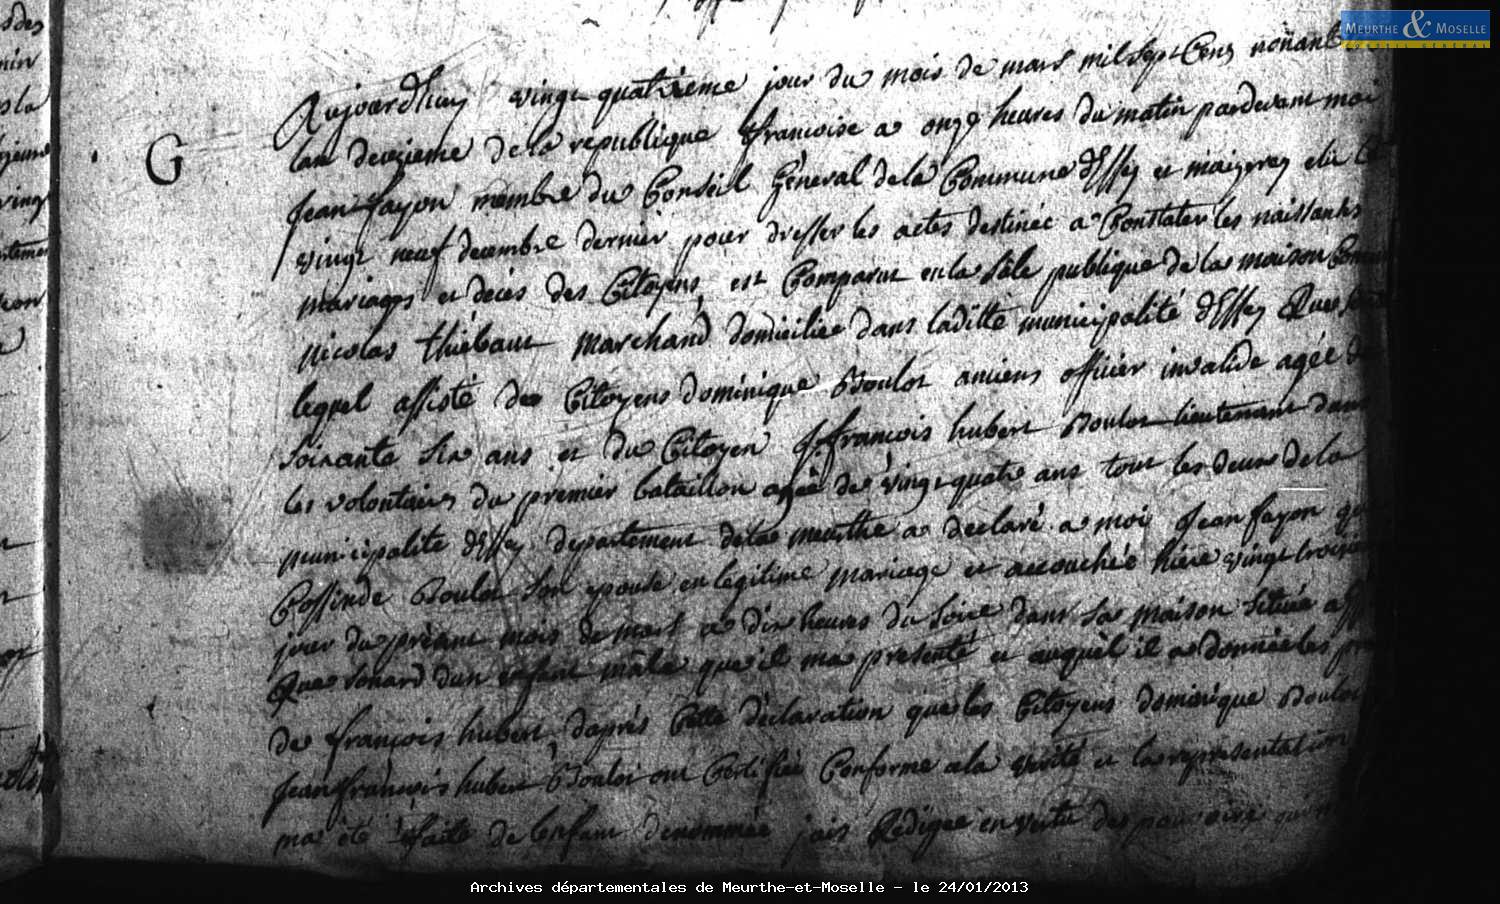 MEURTHE & MOSELLE
CONSEIL GÉNÉRAL
G
Aujourdhuy vingt quatrieme jour du mois de mars mil sept Cens nonante
lan deuxieme de la republique francoise a onze heures du matin pardevant moi
Jean fayon membre du Conseil General de la Commune dEssey et maizerey elu
vingt neuf decembre dernier pour dresser les actes destinée a Constater les naissantes
mariages et decès des Citoyens est Comparut en la sale publique de la maison Commune
nicolas thiebaut marchand domiciliee dans laditte municipalité dEssey
lequel assisté des Citoyens dominique Boulot anciens officier invalide agée de
soixante six ans et du Citoyen J. francois hubert Boulot lieutenant dans
les volontaires du premier bataillon agée de vingt quatre ans tout les deux de la
municipalite dEssey departement de la meurthe a declaré a moi Jean fayon que
Boulot son epouse en legitime mariage et accouchée hiere vingt troisieme
jour du présent mois de mars a dix heures du soire dans sa maison située
dun enfant mâle que il ma presenté et auquel il a donnée les
de françois hubert daprés Cette déclaration que les Citoyens dominique Boulot
Jean françois hubert Boulot ont Certifiée Conforme a la verité et la representation
ma été faite de lenfant denommée jais Redigée en vertu des pouvoirs
Archives départementales de Meurthe-et-Moselle - le 24/01/2013